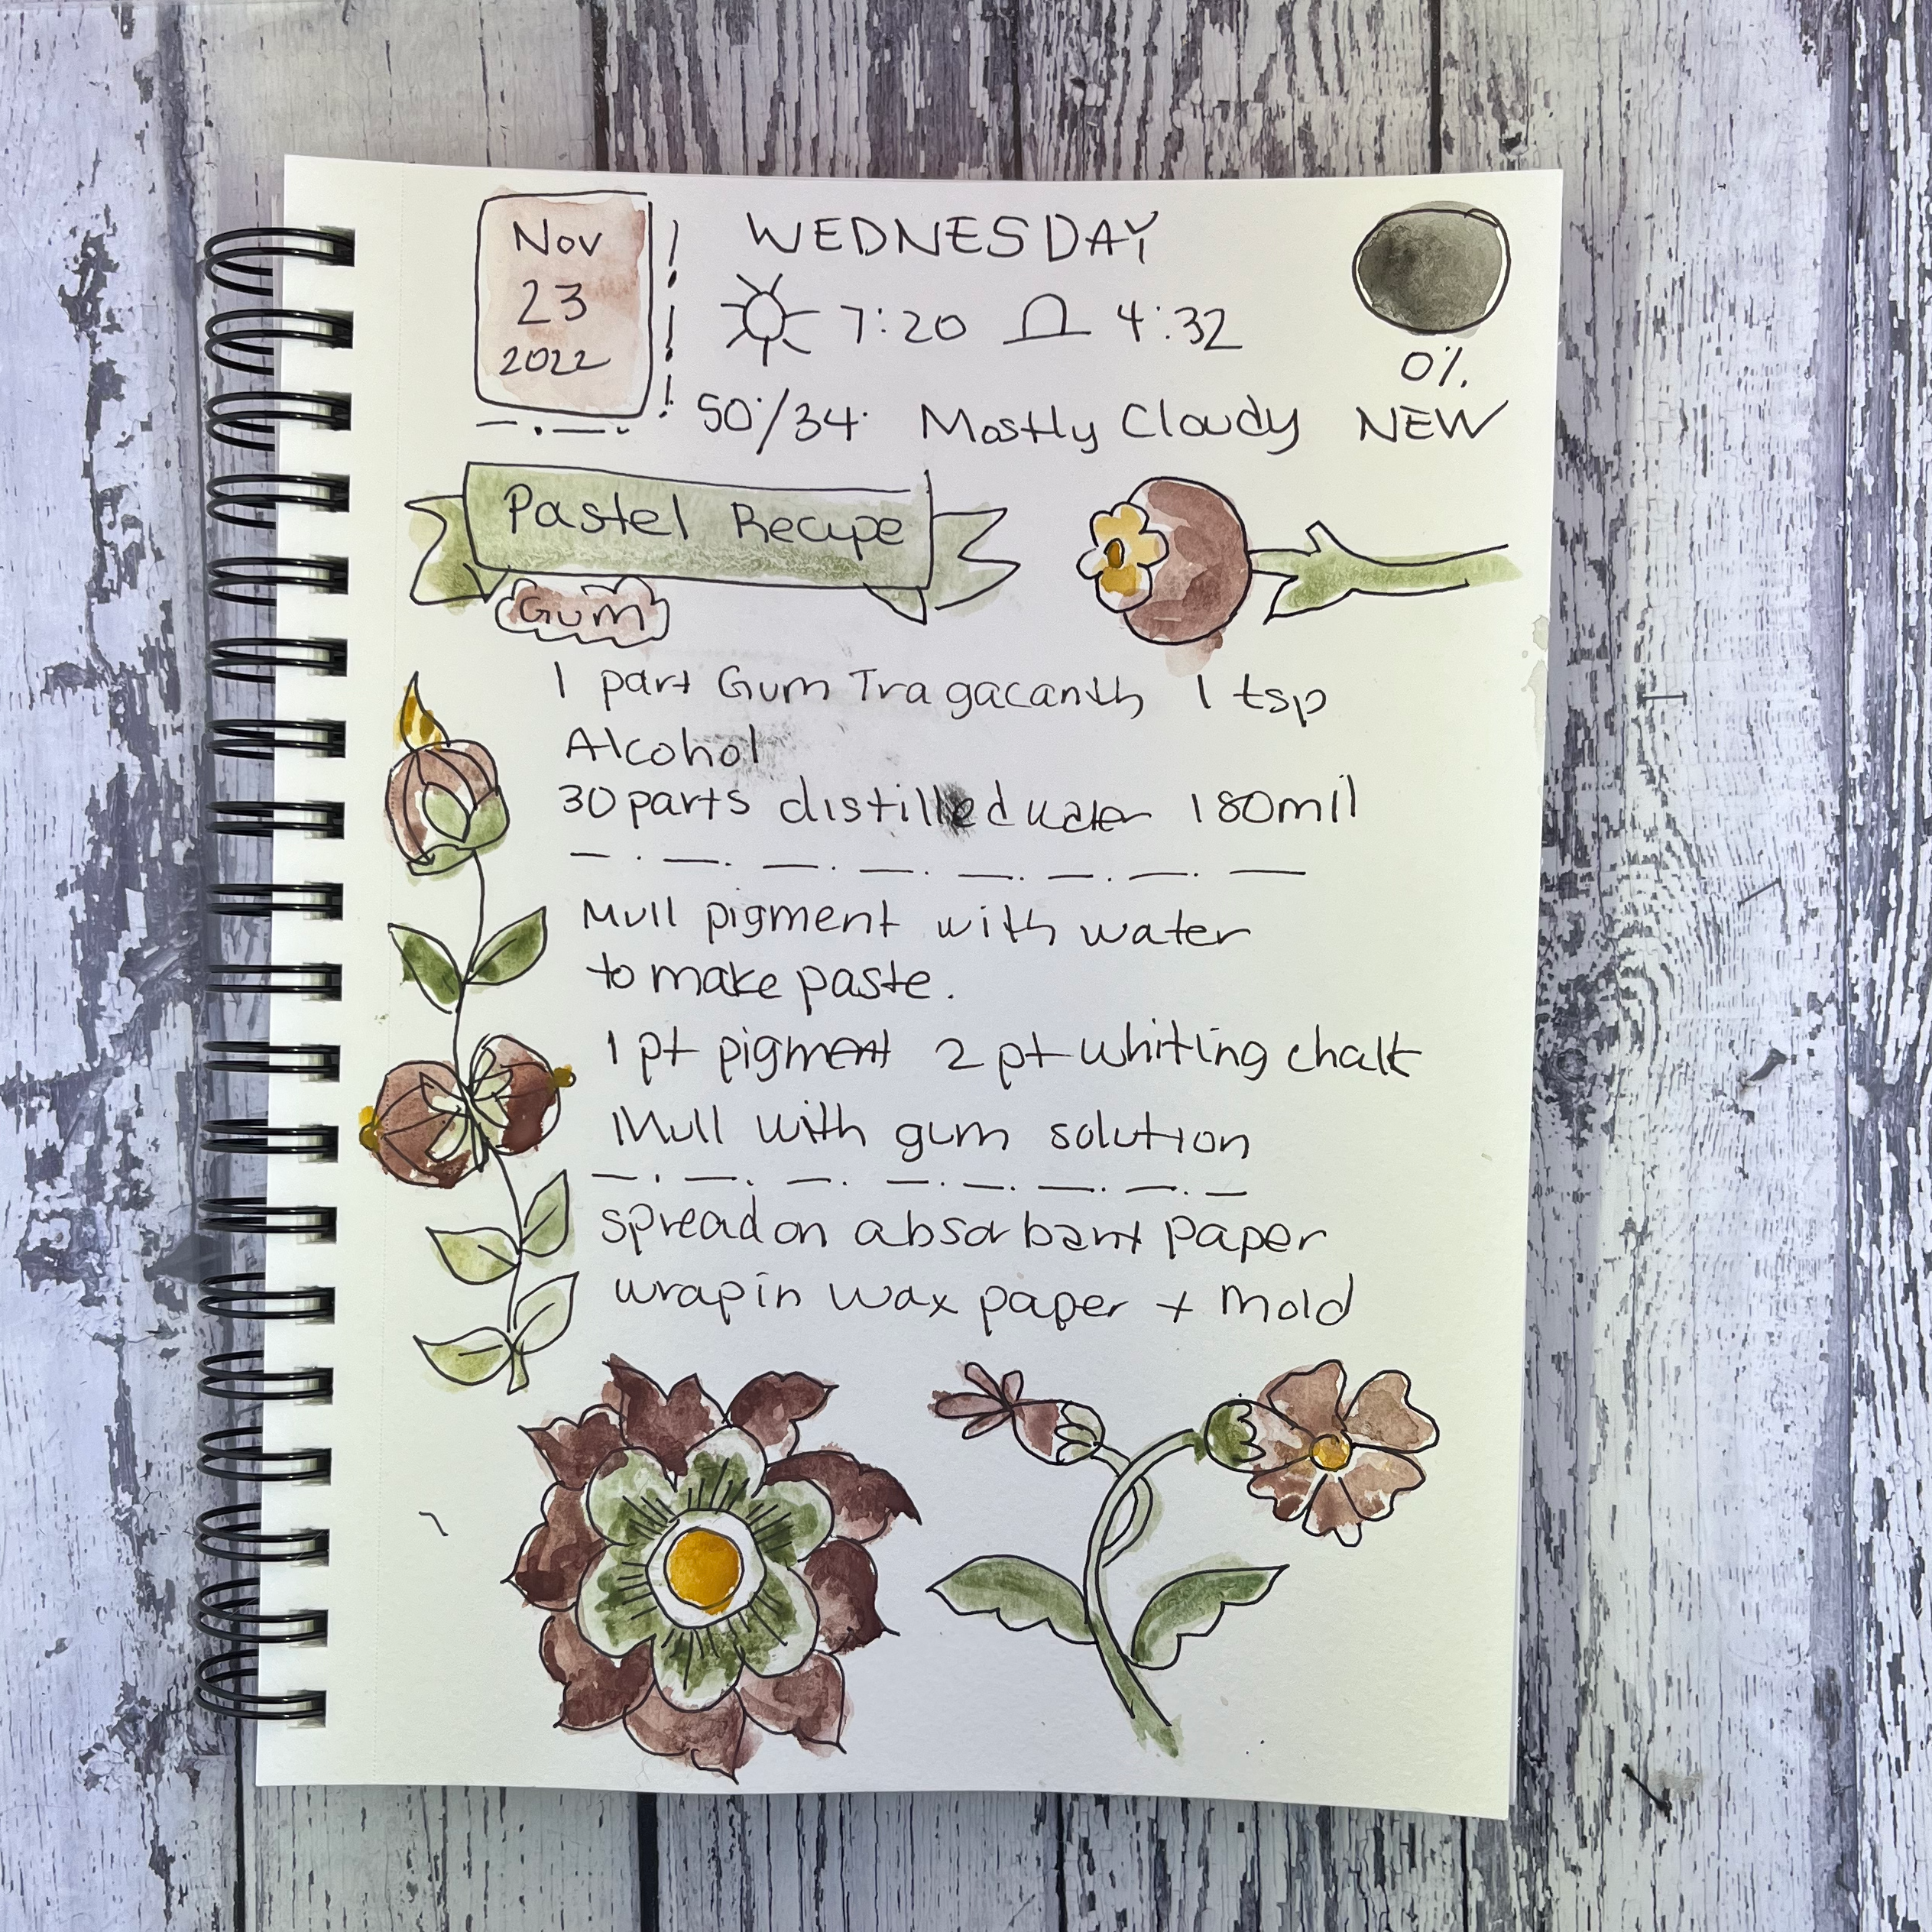 Nov
23
2022
WEDNESDAY
7:20 4:32
50°/34° Mostly Cloudy
0%
NEW
Pastel Recipe
Gum
1 part Gum Tragacanth 1 tsp
Alcohol
30 parts distilled water 180mil
Mull pigment with water
to make paste.
1 pt pigment 2 pt whiting chalk
Mull with gum solution
spread on absorbant paper
wrap in wax paper + mold